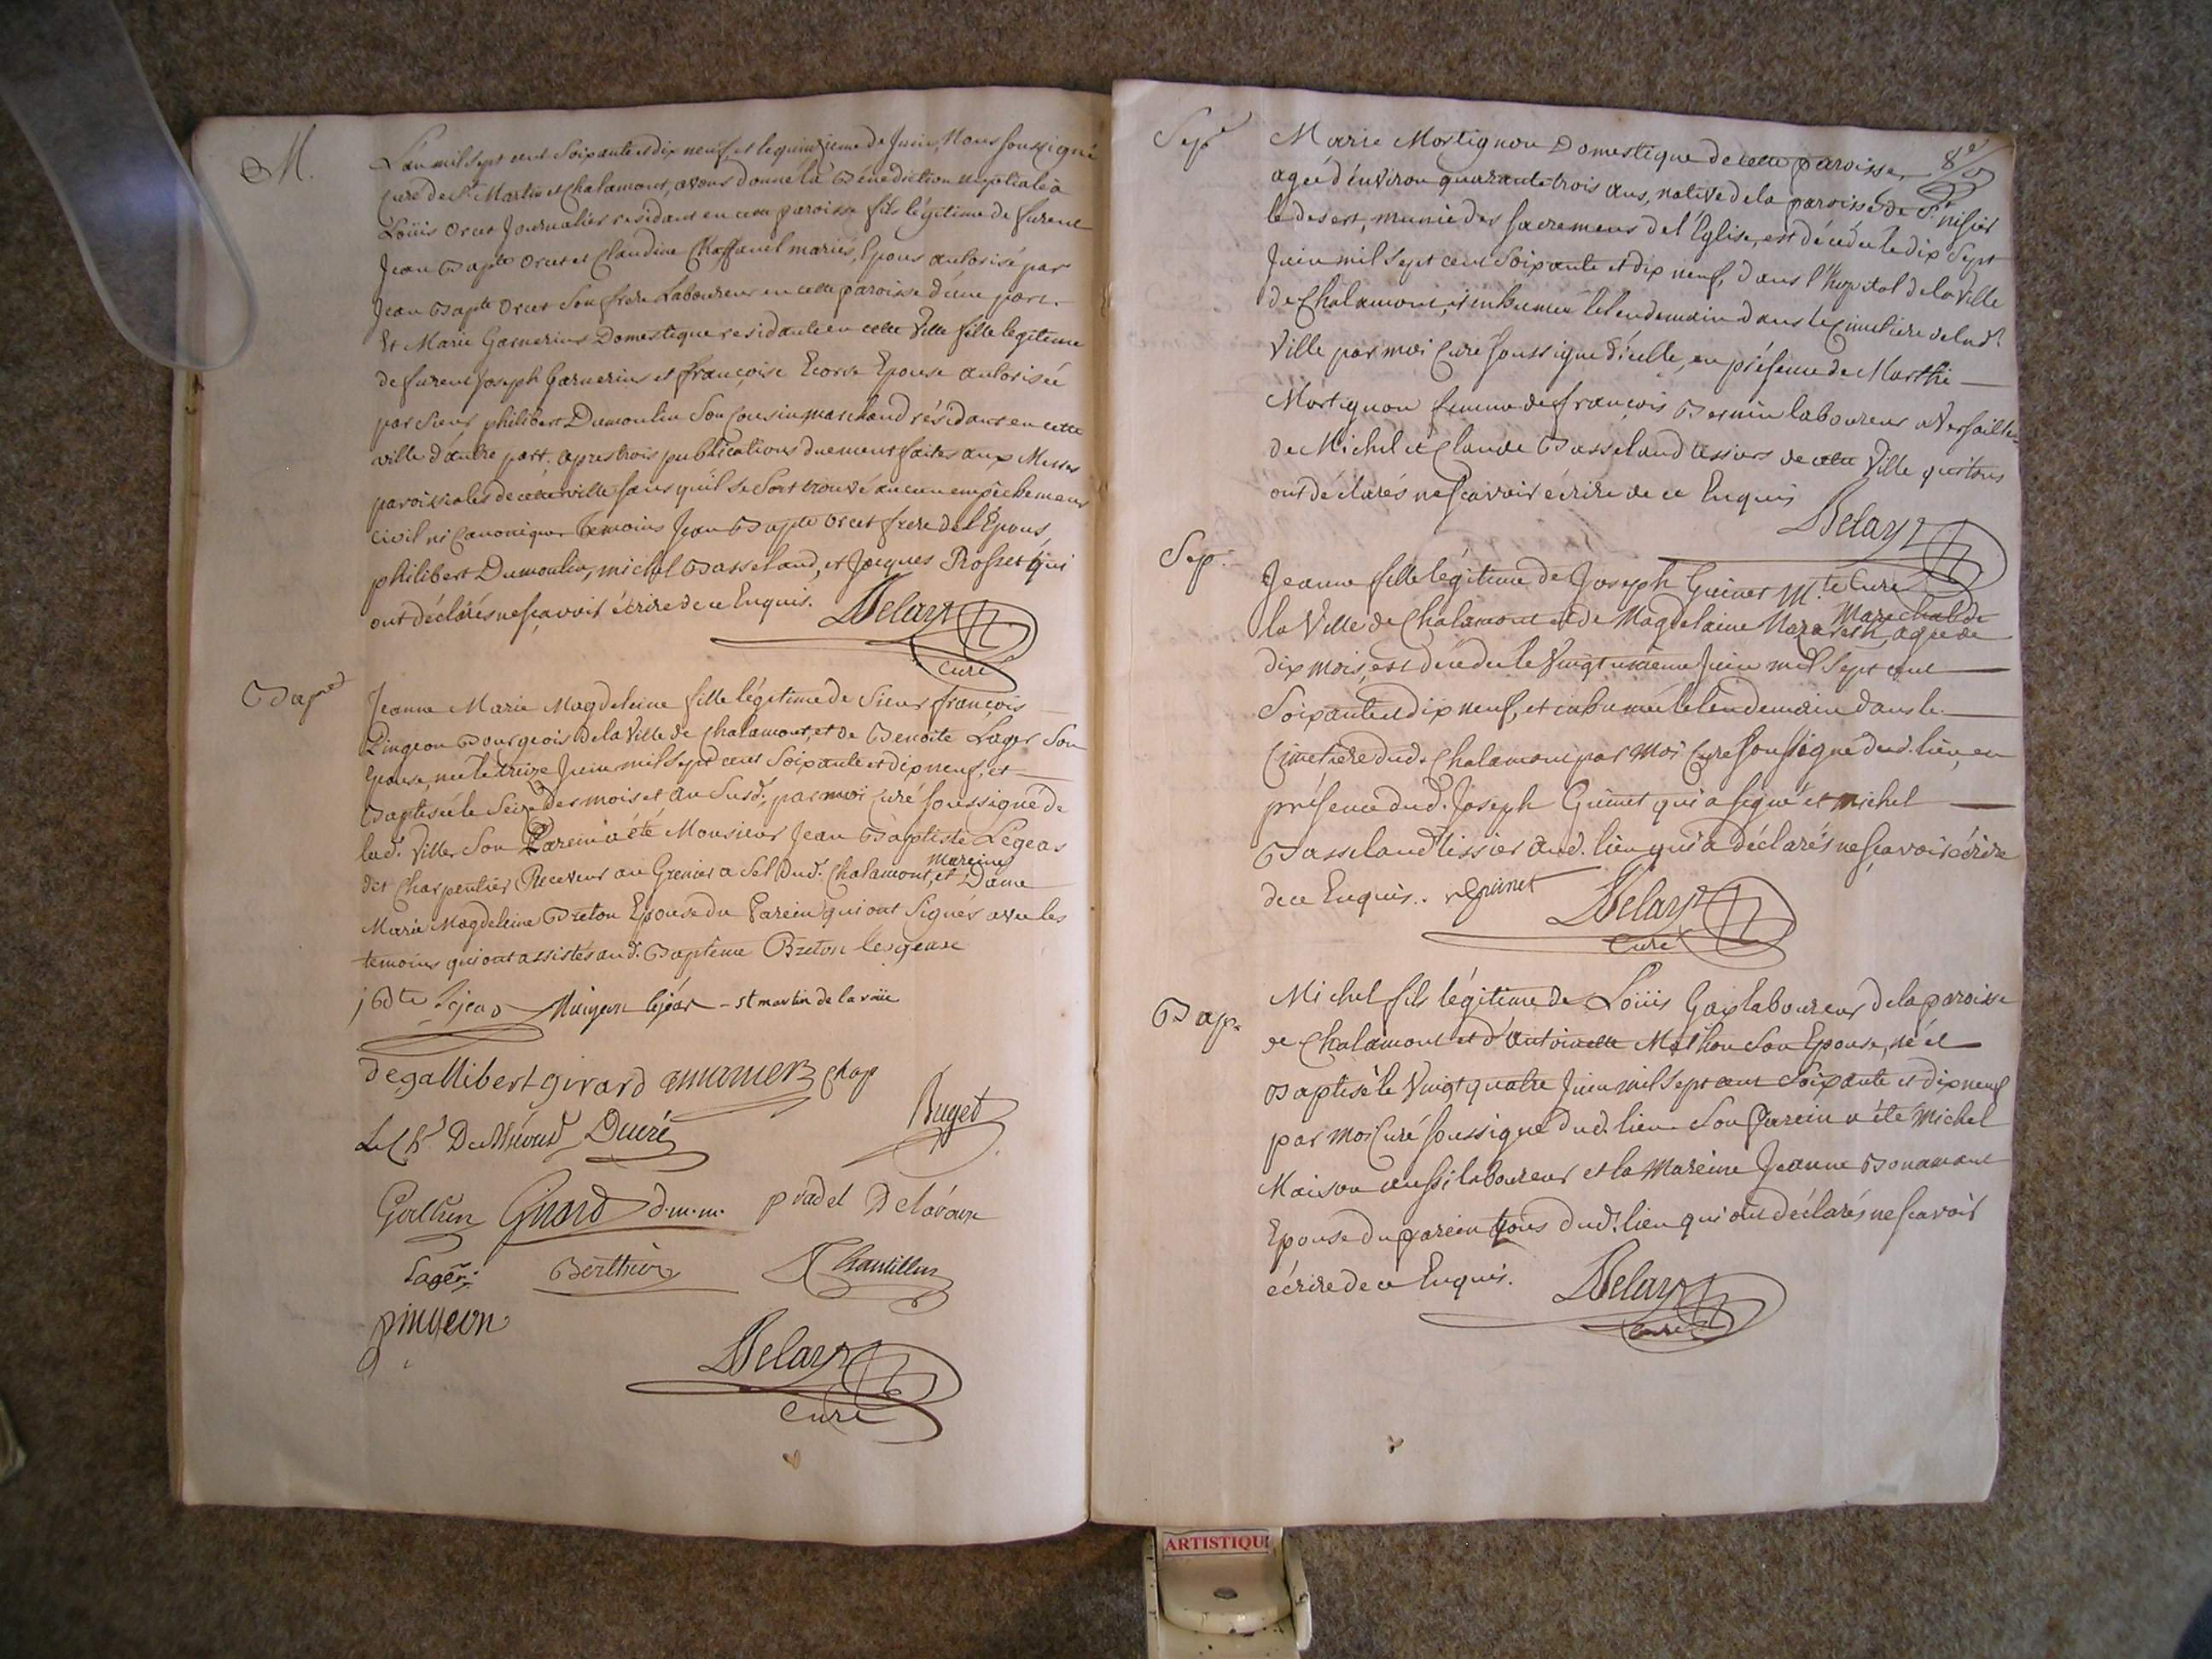 M.
L'an mil sept cent Soixante et dix neuf et le quinzieme de Juin, Nous soussigné
Curé de St. Martin et Chalamont, avons donné la Bénediction nuptiale à
Loüis Orcet Journalier residant en cette paroisse fils légitime de furent
Jean Bapte Orcet et Claudine Chaffanel mariés, Epoux authorisé par
Jean Bapte Orcet Son frere Laboureur en cette paroisse d'une part.
Et Marie Garnerius Domestique residante en cette Ville fille legitime
de furent Joseph Garnerius et françoise Epouse authorisée
par Sieur philibert Dumoulin Son Cousin, marchand résidant en cette
ville d'autre part. apres trois publications duement faites aux Messes
paroissiales de cette ville sans qu'il se Soit trouvé aucun empêchement
Civil ni Canonique. temoins Jean Bapte Orcet frere de l'Epoux,
philibert Dumoulin, michel Basseland, et Jacques Prosset qui
ont déclarés ne sçavoir écrire de ce Enquis. Delay
Curé
Bap
Jeanne Marie Magdeleine fille légitime de Sieur françois
Pingeon Bourgeois de la Ville de Chalamont, et de Benoite Lager Son
Epouse, née le treize Juin mil sept cent Soixante et dix neuf, et
Baptisée le Seize des mois et an Susd., par moi Curé soussigné de
lad. Ville. Son Parein a été Monsieur Jean Baptiste Legeas
dit Charpentier Receveur au Grenier a Sel dud. Chalamont, et Dame
mareine
Marie Magdeleine Breton Epouse du Parein qui ont Signés avec les
temoins qui ont assistés aud. Baptême Breton legeas
j Bdte Lejeas Pingeon lejéas - st martin de la vaüe
degallibert girard chap
Ducré Buget
Girard d.m.m. pradel
Lager Berthier
pingeon
Delay
Curé
8e
Sep
Marie Mortignon Domestique de cette paroisse,
agée d'environ quarante trois ans, native de la paroisse de St. nisier
le desert, munie des sacremens de l'Église, est décédée le dix Sept
Juin mil sept cent Soixante et dix neuf, dans l'hôpital de la Ville
de Chalamont, et inhumée le lendemain dans le Cimetiere de lad.
Ville par moi Curé soussigné d'icelle, en présence de Marthe
Mortignon femme de françois Bernin laboureur a Versailleux
de Michel et Claude Basseland tissiers de cette Ville qui tous
ont déclarés ne sçavoir écrire de ce Enquis
Delay
Curé
Sep.
Jeanne fille légitime de Joseph Guinet M.
Marechal de
la Ville de Chalamont et de Magdelaine Nazareth, agée de
dix mois, est décédée le Vingt unieme Juin mil Sept cent
Soixante et dix neuf, et inhumée le lendemain dans le
Cimetiere dud. Chalamont par moi Curé soussigné dud. lieu, en
présence dud. Joseph Guinet qui a signé et michel
Basseland tissier dud. lieu qui a déclarés ne sçavoir écrire
de ce Enquis. Guinet Delay
Curé
Bap.
Michel fils légitime de Loüis Gay laboureur de la paroisse
de Chalamont et d'Antoinette Mathon Son Epouse, né et
Baptisé le Vingt quatre Juin mil sept cent Soixante et dix neuf
par moi Curé soussigné dud. lieu. Son Parein a été Michel
Maison aussi laboureur et la Mareine Jeanne Bonamant
Epouse du parein tous dud. lieu qui ont déclarés ne sçavoir
écrire de ce Enquis. Delay
Curé
ARTISTIQU